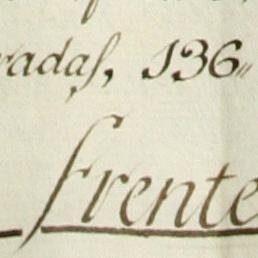 radas, 136„
frente